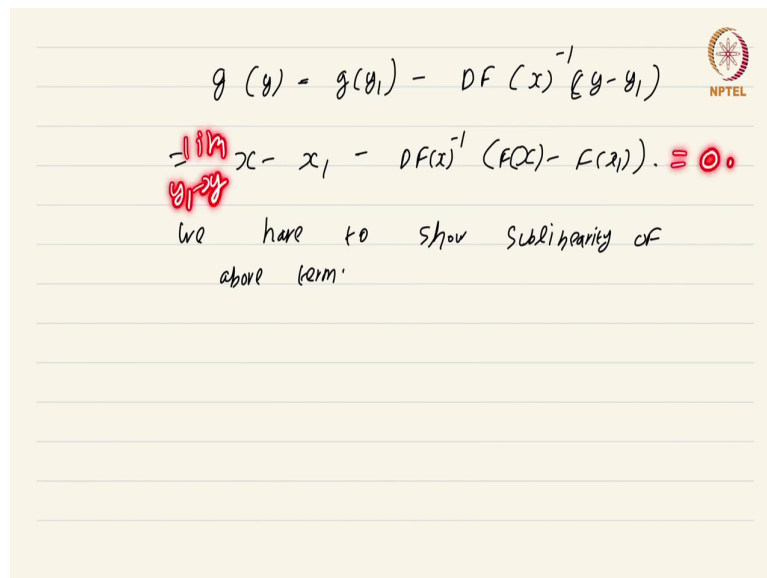 g (y) - g(y₁) - DF (x)⁻¹ (y-y₁)
NPTEL
= lim y₁→y x - x₁ - DF(x)⁻¹ (F(x) - F(x₁)). = 0.
We have to show sublinearity of
above term.